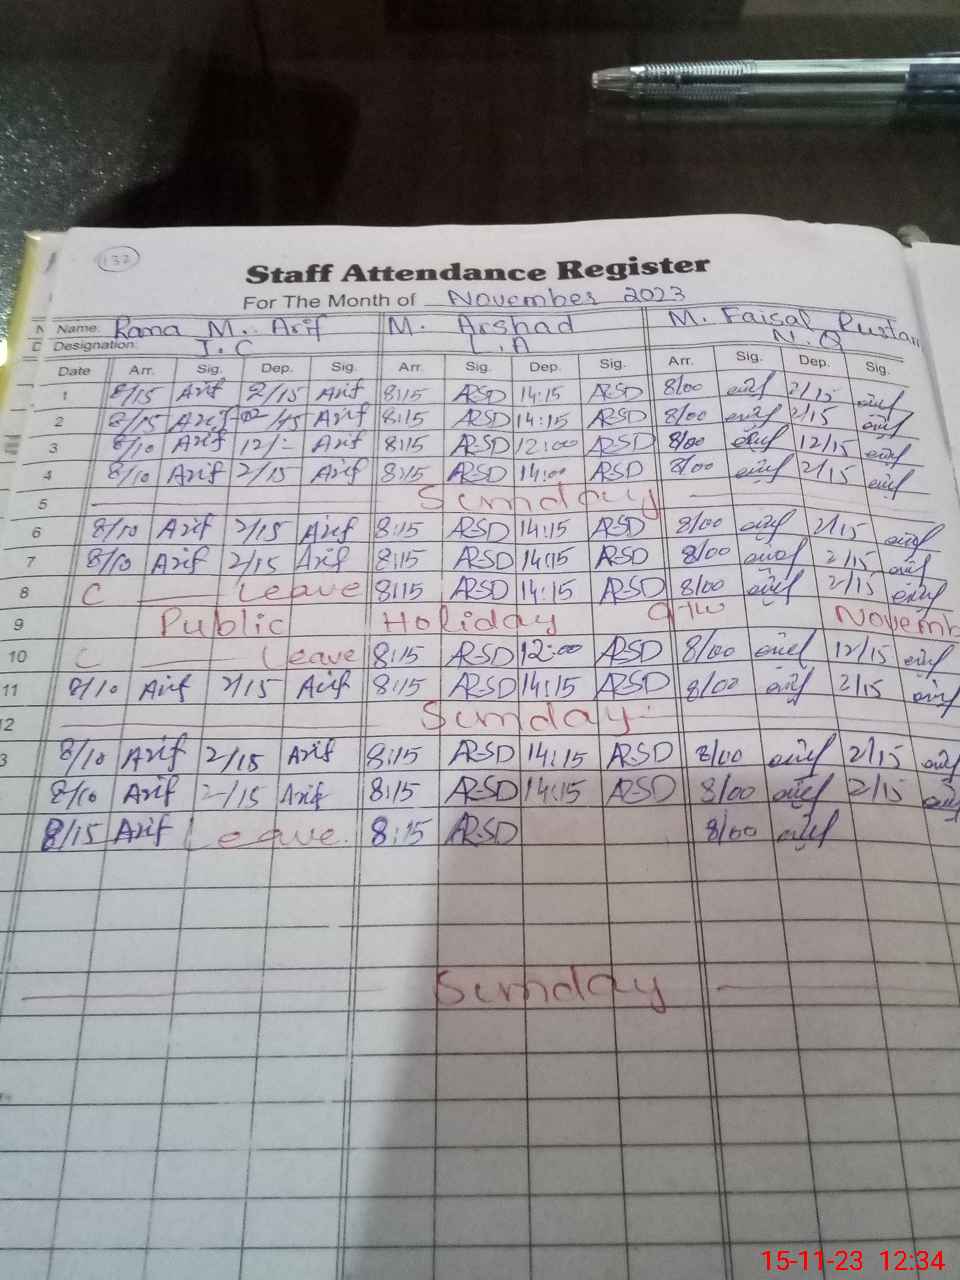 137
Staff Attendance Register
For The Month of November 2023
Name: Rana M. Arif M. Arshad M. Faisal Rustam
Designation: J.C L.A N.Q
Date Arr. Sig. Dep. Sig. Arr. Sig. Dep. Sig. Arr. Sig. Dep. Sig.
1 8/15 Arif 2/15 Arif 8:15 ARSD 14:15 ARSD 8/00 2/15
2 8/15 Arif Arif 8:15 ARSD 14:15 ARSD 8/00 2/15
3 8/10 Arif 12/= Arif 8:15 ARSD 12:00 ARSD 8/00 12/15
4 8/10 Arif 2/15 Arif 8:15 ARSD 14:00 ARSD 8/00 2/15
5 Sunday
6 8/10 Arif 2/15 Arif 8:15 ARSD 14:15 ARSD 8/00 2/15
7 8/10 Arif 2/15 Arif 8:15 ARSD 14:15 ARSD 8/00 2/15
8 C Leave 8:15 ARSD 14:15 ARSD 8/00 2/15
9 Public Holiday 9th Novemb
10 C Leave 8:15 ARSD 12:00 ARSD 8/00 12/15
11 8/10 Arif 2/15 Arif 8:15 ARSD 14:15 ARSD 8/00 2/15
2 Sunday
3 8/10 Arif 2/15 Arif 8:15 ARSD 14:15 ARSD 8/00 2/15
8/10 Arif 2/15 Arif 8:15 ARSD 14:15 ARSD 8/00 2/15
8/15 Arif Leave. 8:15 ARSD 8/00
Sunday
15-11-23 12:34